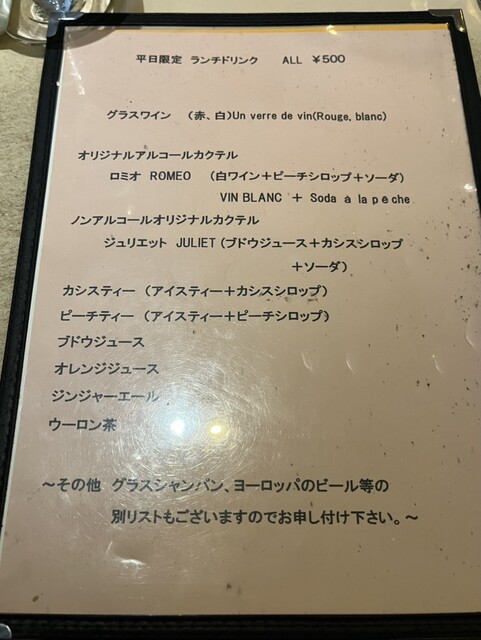 平日限定 ランチドリンク ALL ¥500
グラスワイン (赤、白)Un verre de vin(Rouge, blanc)
オリジナルアルコールカクテル
ロミオ ROMEO (白ワイン+ピーチシロップ+ソーダ)
VIN BLANC + Soda à la pêche
ノンアルコールオリジナルカクテル
ジュリエット JULIET (ブドウジュース+カシスシロップ
+ソーダ)
カシスティー (アイスティー+カシスシロップ)
ピーチティー (アイスティー+ピーチシロップ)
ブドウジュース
オレンジジュース
ジンジャーエール
ウーロン茶
~その他 グラスシャンパン、ヨーロッパのビール等の
別リストもございますのでお申し付け下さい。~